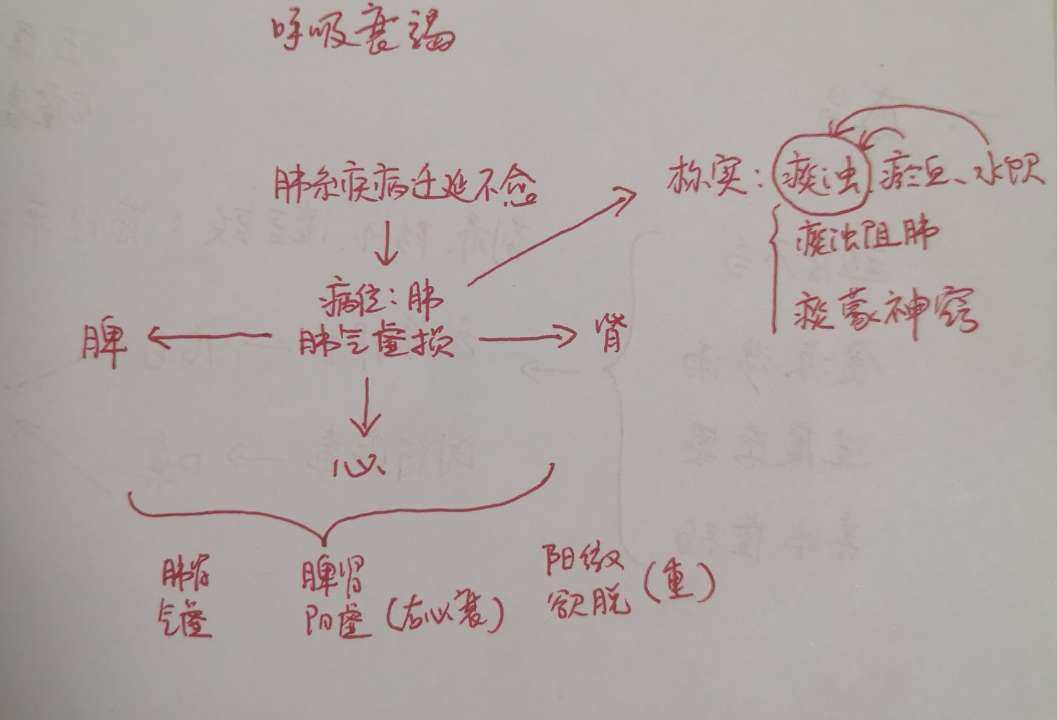 呼吸衰竭
肺系疾病迁延不愈
标实：痰浊、瘀血、水饮
痰浊阻肺
痰蒙神窍
病位：肺
脾
肺气虚损
肾
心
肺肾
气虚
脾肾
阳虚（右心衰）
阳微
欲脱（重）